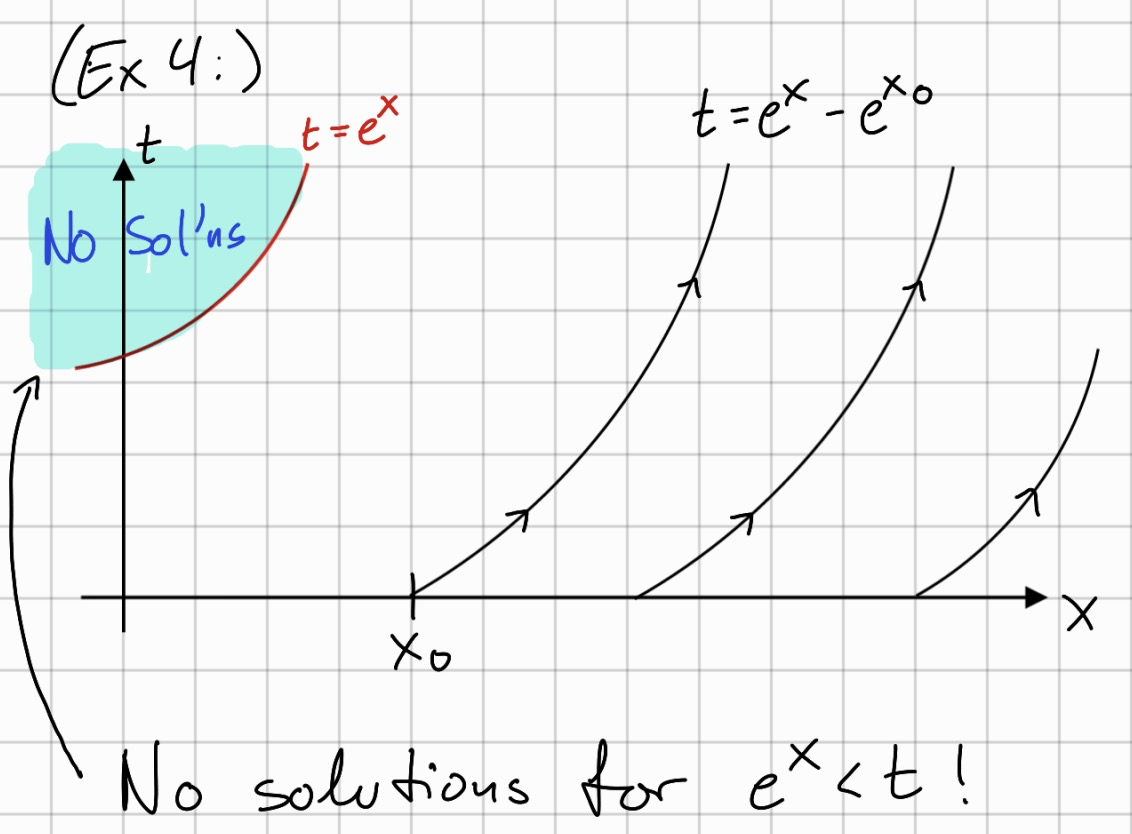 (Ex 4:)
t = eˣ
t = eˣ - eˣ⁰
t
No Sol'ns
x
x₀
No solutions for eˣ < t !